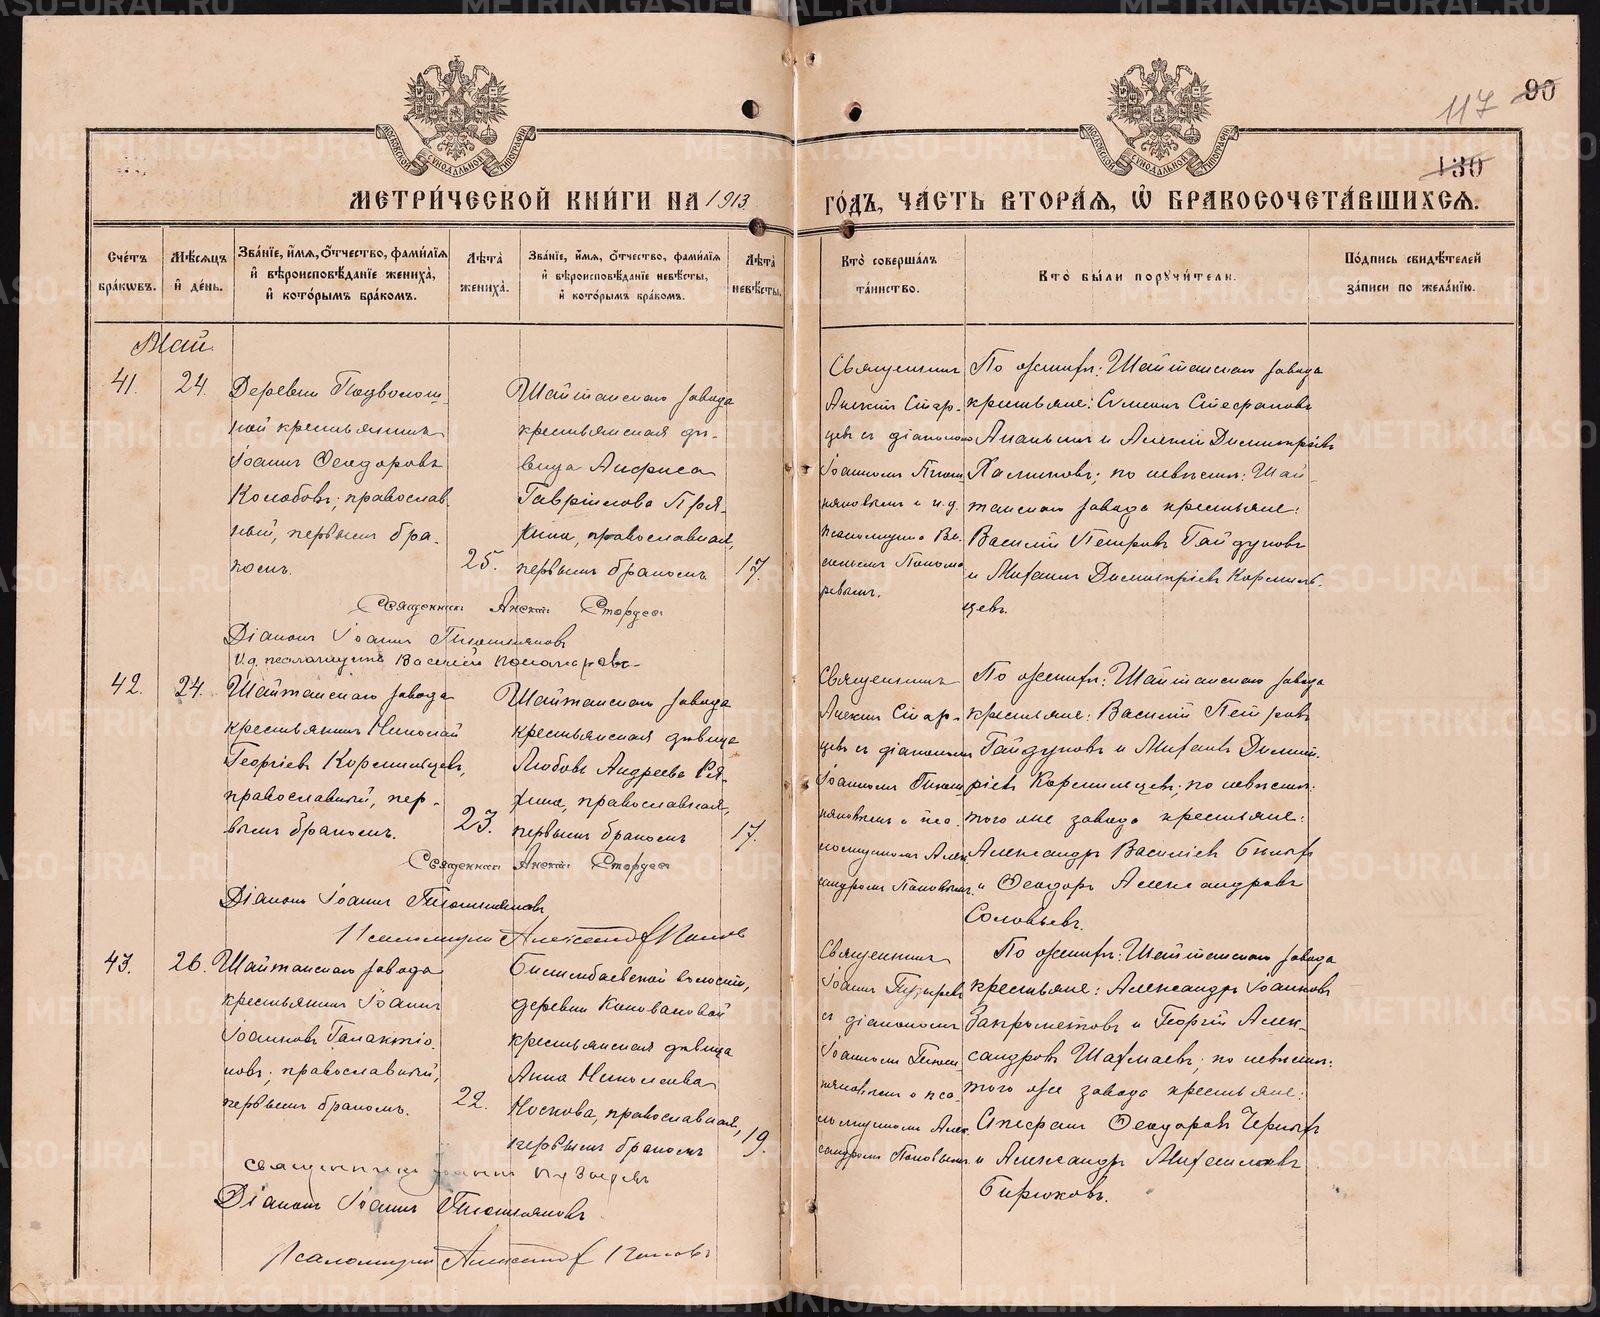 117
90
130
МОСКОВСКОЙ СѴНОДАЛЬНОЙ ТИПОГРАФІИ
МОСКОВСКОЙ СѴНОДАЛЬНОЙ ТИПОГРАФІИ
МЕТРИ́ЧЕСКОЙ КНИ́ГИ НА 1913
ГО́ДЪ, ЧА́СТЬ ВТОРА́Ѧ, Ѡ҆ БРАКОСОЧЕТА́ВШИХСѦ.
Сче́тъ бра́кѡвъ.
Мѣ́сѧцъ и҆ де́нь.
Зва́нїе, и҆́мѧ, ѻ҆́тчество, фами́лїѧ
и҆ вѣроисповѣ́данїе жениха̀,
и҆ кото́рымъ бра́комъ.
Лѣ́та̀ жениха̀.
Зва́нїе, и҆́мѧ, ѻ҆́тчество, фами́лїѧ
и҆ вѣроисповѣ́данїе невѣ́сты,
и҆ кото́рымъ бра́комъ.
Лѣ́та̀ невѣ́сты.
Кто̀ соверша́лъ
та́инство.
Кто̀ бы́ли порꙋчи́тели.
По́дпись свидѣ́телей
за́писи по жела́нїю.
Май.
41.
24.
Деревни Подволош
ной крестьянинъ
Іоаннъ Ѳеодоровъ
Колобовъ, православ
ный, первымъ бра-
комъ.
25.
Шайтанскаго завода
крестьянская дѣ-
вица Анфиса
Гавріилова Пря-
хина, православная,
первымъ бракомъ.
17.
Священникъ
Алексій Стар-
цевъ съ діакономъ
Іоанномъ Тюш
няковымъ и и.д.
псаломщика Ва-
силіемъ Понома
ревымъ.
По женихѣ: Шайтанскаго завода
крестьяне: Симеонъ Стефановъ
Ананьинъ и Алексій Димитріевъ
Халтиновъ; по невѣстѣ: Шай-
танскаго завода крестьяне:
Василій Петровъ Гайдуковъ
и Михаилъ Димитріевъ Кормиль-
цевъ.
Священникъ Алексій Старцевъ
Діаконъ Іоаннъ
И.д. псаломщика Василій Пономаревъ
42.
24.
Шайтанскаго завода
крестьянинъ Николай
Георгіевъ Кормильцевъ,
православный, пер-
вымъ бракомъ.
23.
Шайтанскаго завода
крестьянская дѣвица
Любовь Андреева Ря-
хина, православная,
первымъ бракомъ
17.
Священникъ
Алексій Стар-
цевъ съ діакономъ
Іоанномъ Тюш
няковымъ и пса-
ломщикомъ Алек
сандромъ Поповымъ.
По женихѣ: Шайтанскаго завода
крестьяне: Василій Петровъ
Гайдуковъ и Михаилъ Димит-
ріевъ Кормильцевъ; по невѣстѣ:
того же завода крестьяне:
Александръ Василіевъ Бѣлыхъ
и Ѳеодоръ Александровъ
Соловьевъ.
Священникъ Алексій Старцевъ
Діаконъ Іоаннъ
Псаломщикъ Александръ Поповъ
43.
26.
Шайтанскаго завода
крестьянинъ Іоаннъ
Іоанновъ Галактіо
новъ; православный,
первымъ бракомъ.
22.
Билимбаевской волости,
деревни Коноваловой
крестьянская дѣвица
Анна Николаева
Носкова, православная,
первымъ бракомъ
19.
Священникъ
Іоаннъ Пузыревъ
съ діакономъ
Іоанномъ Тюш
няковымъ и пса-
ломщикомъ Алек
сандромъ Поповымъ
По женихѣ: Шайтанскаго завода
крестьяне: Александръ Іоанновъ
Закрометовъ и Георгій Алек-
сандровъ Шахмаевъ; по невѣстѣ:
того же завода крестьяне:
Стефанъ Ѳеодоровъ Черныхъ
и Александръ Михаиловъ
Бирюковъ.
Священникъ Іоаннъ Пузыревъ
Діаконъ Іоаннъ
Псаломщикъ Александръ Поповъ
METRIKI.GASO-URAL.RU